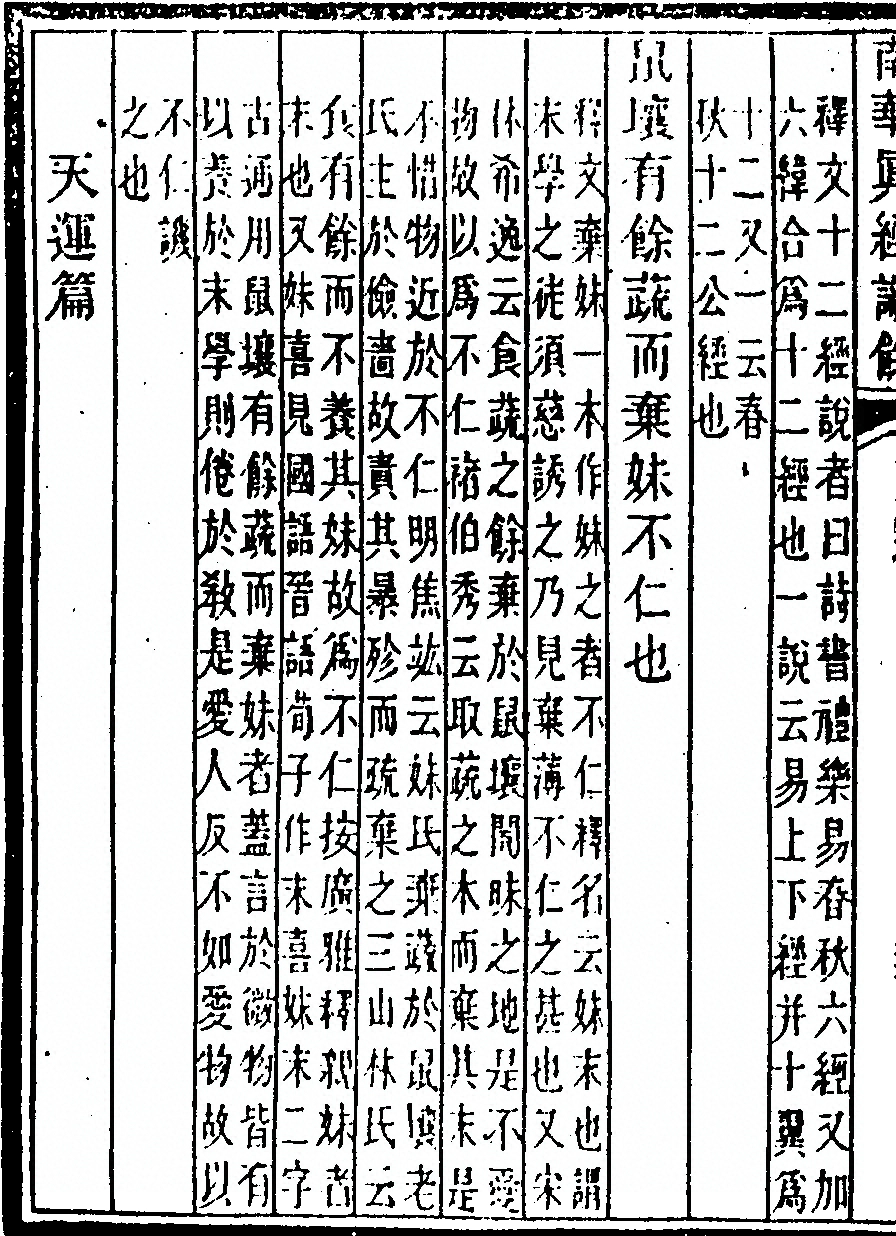 南華眞經識餘
釋文十二經說者曰詩書禮樂易春秋六經又加
六緯合爲十二經也一說云易上下經并十翼爲
十二又一云春
秋十二公經也
鼠壤有餘蔬而棄妹不仁也
釋文棄妹一本作妹之者不仁釋名云妹末也謂
末學之徒須慈誘之乃見棄薄不仁之甚也又宋
林希逸云食蔬之餘棄於鼠壤闇昧之地是不愛
物故以爲不仁褚伯秀云取蔬之本而棄其末是
不惜物近於不仁明焦竑云妹氏棄蔬於鼠壤老
氏主於儉嗇故責其暴殄而疏棄之三山林氏云
食有餘而不養其妹故爲不仁按廣雅釋親妹者
末也又妹喜見國語晉語荀子作末喜妹末二字
古通用鼠壤有餘蔬而棄妹者蓋言於微物皆有
以養於末學則倦於教是愛人反不如愛物故以
不仁譏
之也
天運篇